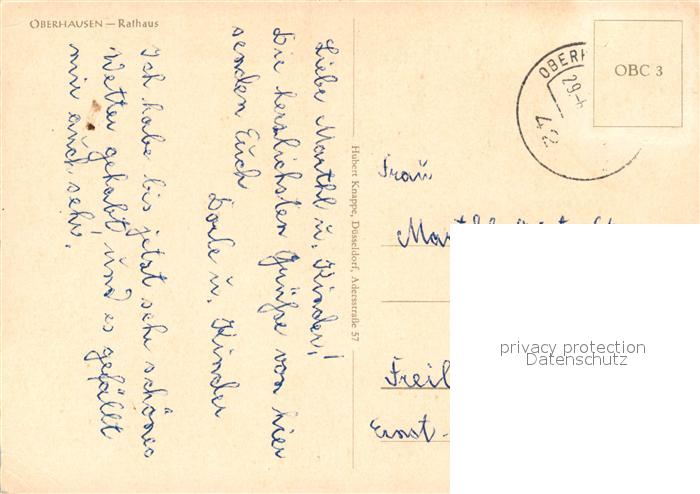 OBERHAUSEN — Rathaus
Liebe Marthl u. Kinder!
Die herzlichsten Grüße von hier
senden Euch
Dorle u. Kinder
Ich habe bis jetzt sehr schönes
Wetter gehabt, und es gefällt
mir auch sehr.
Hubert Knappe, Düsseldorf, Adersstraße 57
OBERH
29.
OBC 3
Frau
Freil
Ernst-
privacy protection
Datenschutz